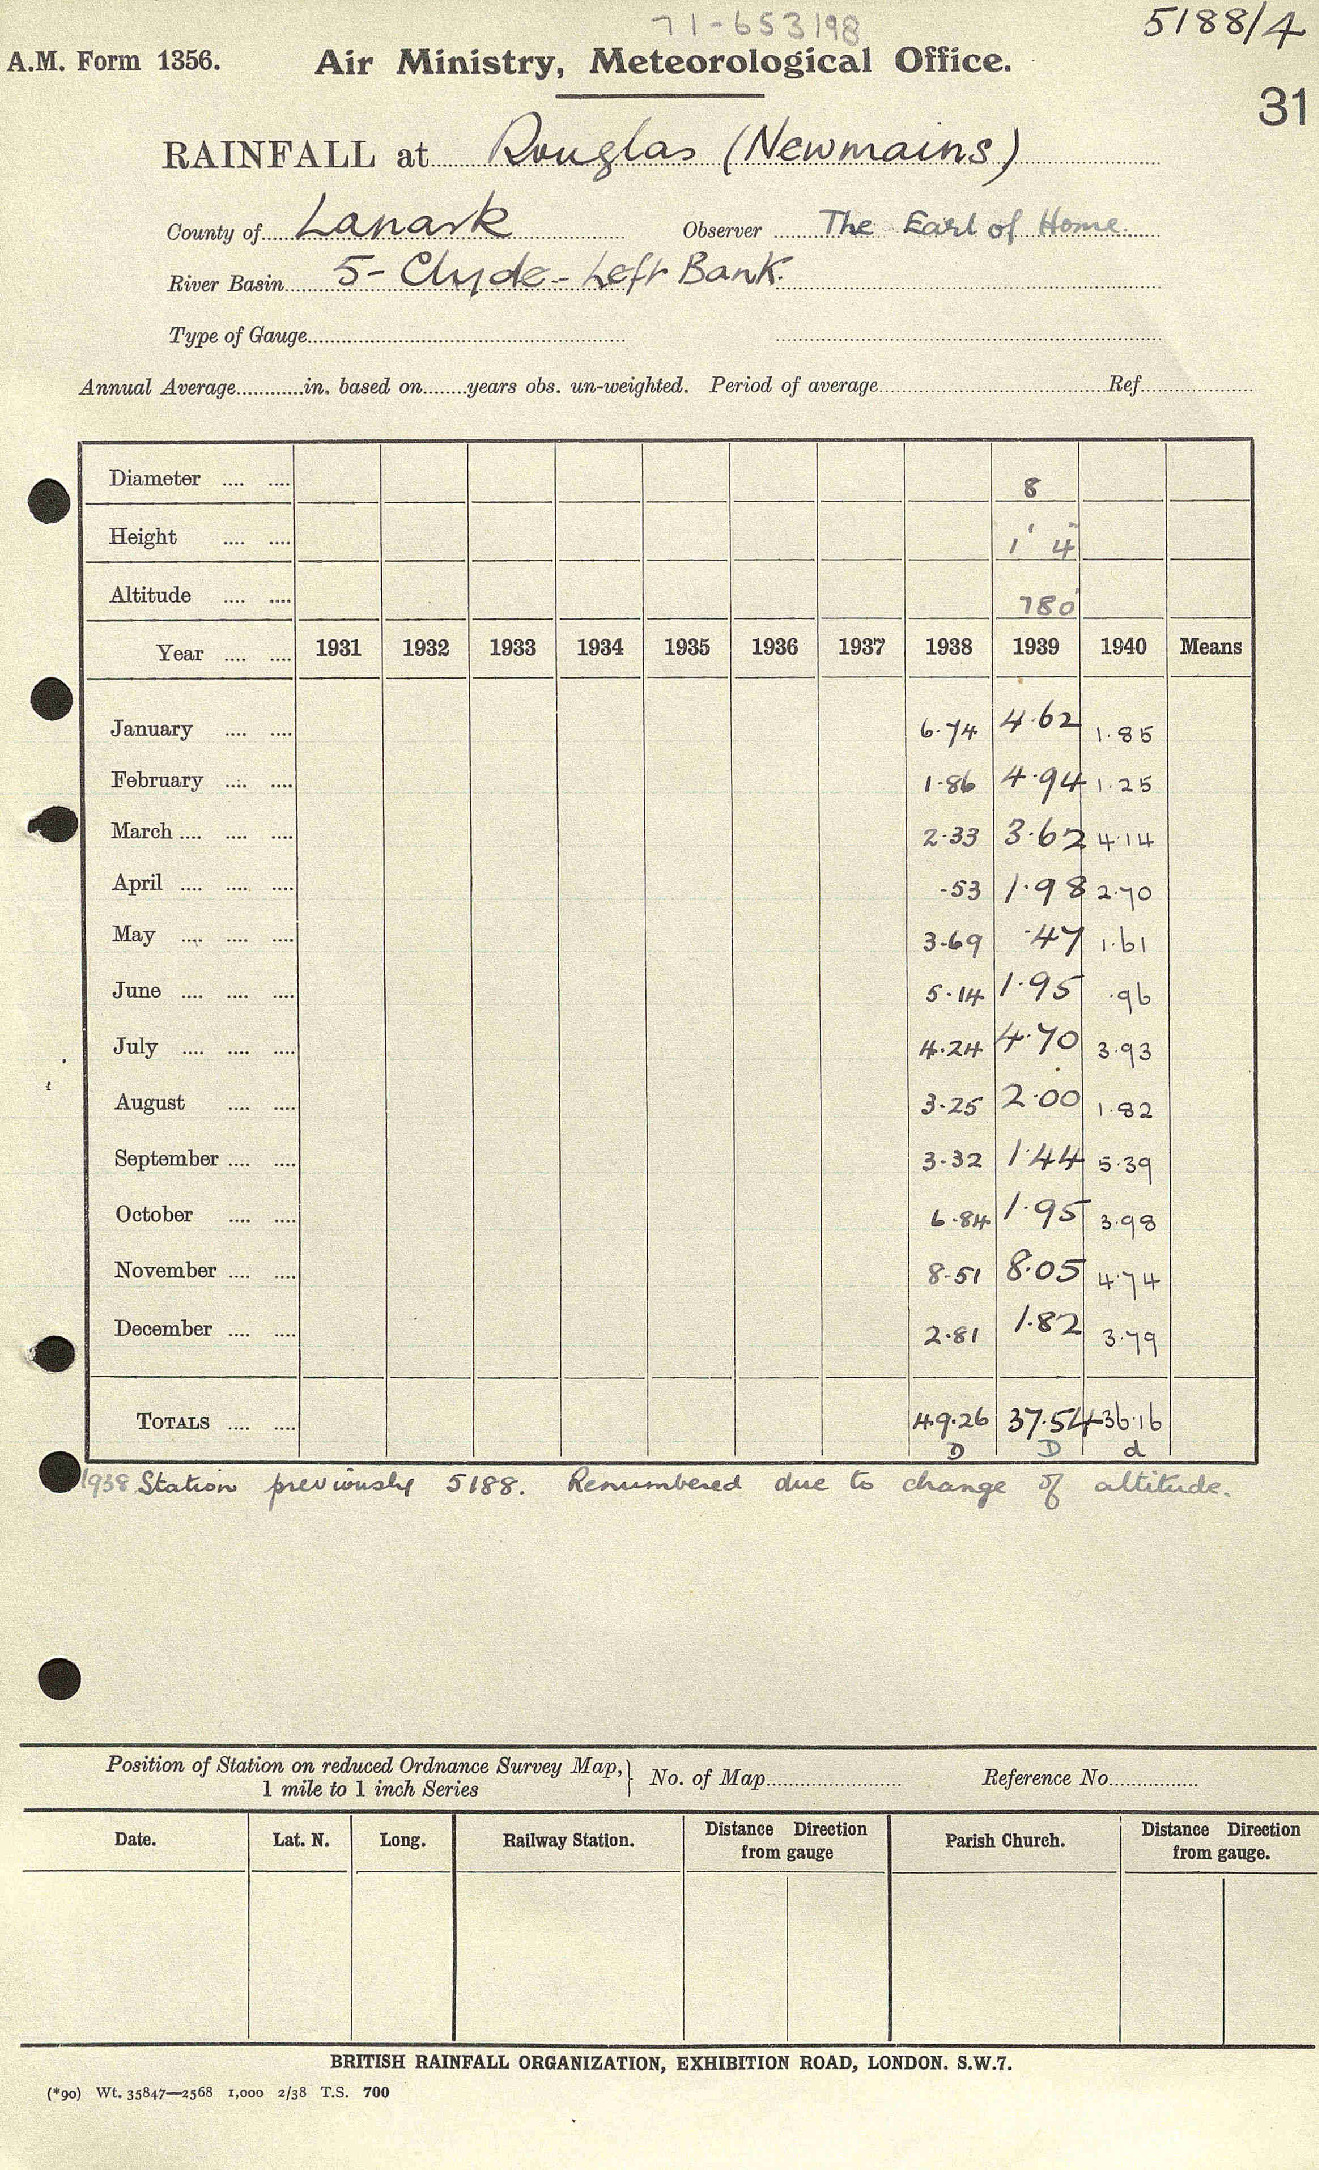 71-653198
5188/4
A.M. Form 1356. Air Ministry, Meteorological Office.
31
RAINFALL at Douglas (Newmains)
County of Lanark Observer The Earl of Home.
River Basin 5 - Clyde - Left Bank.
Type of Gauge
Annual Average in. based on years obs. un-weighted. Period of average Ref.
Diameter 8
Height 1' 4"
Altitude 780'
Year 1931 1932 1933 1934 1935 1936 1937 1938 1939 1940 Means
January 6.74 4.62 1.85
February 1.86 4.94 1.25
March 2.33 3.62 4.14
April .53 1.98 2.70
May 3.69 .47 1.61
June 5.14 1.95 .96
July 4.24 4.70 3.93
August 3.25 2.00 1.82
September 3.32 1.44 5.39
October 6.84 1.95 3.98
November 8.51 8.05 4.74
December 2.81 1.82 3.79
TOTALS 49.26 37.54 36.16
D D d
1938 Station previously 5188. Renumbered due to change of altitude.
Position of Station on reduced Ordnance Survey Map, 1 mile to 1 inch Series } No. of Map Reference No.
Date. Lat. N. Long. Railway Station. Distance Direction from gauge Parish Church. Distance Direction from gauge.
BRITISH RAINFALL ORGANIZATION, EXHIBITION ROAD, LONDON. S.W.7.
(*90) Wt. 35847—2568 1,000 2/38 T.S. 700